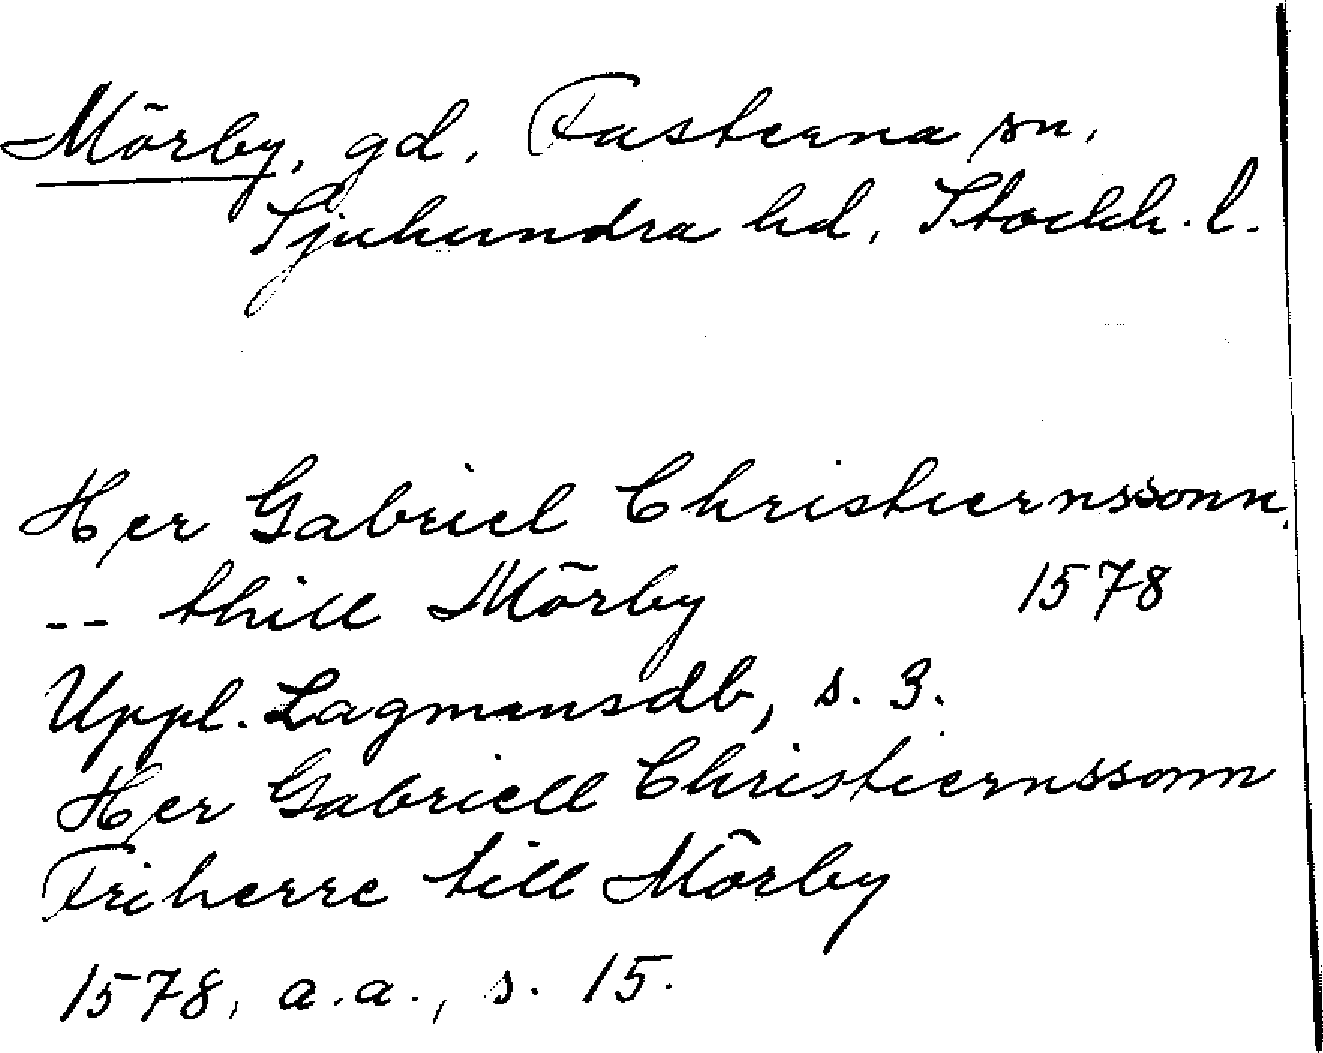 Mörby, gd, Fasterna sn,
Sjuhundra hd, Stockh. l.
Her Gabriel Christiernssonn,
-- thill Mörby 1578
Uppl. Lagmansdb, s. 3.
Her Gabriell Christiernssonn
Friherre till Mörby
1578, a.a., s. 15.